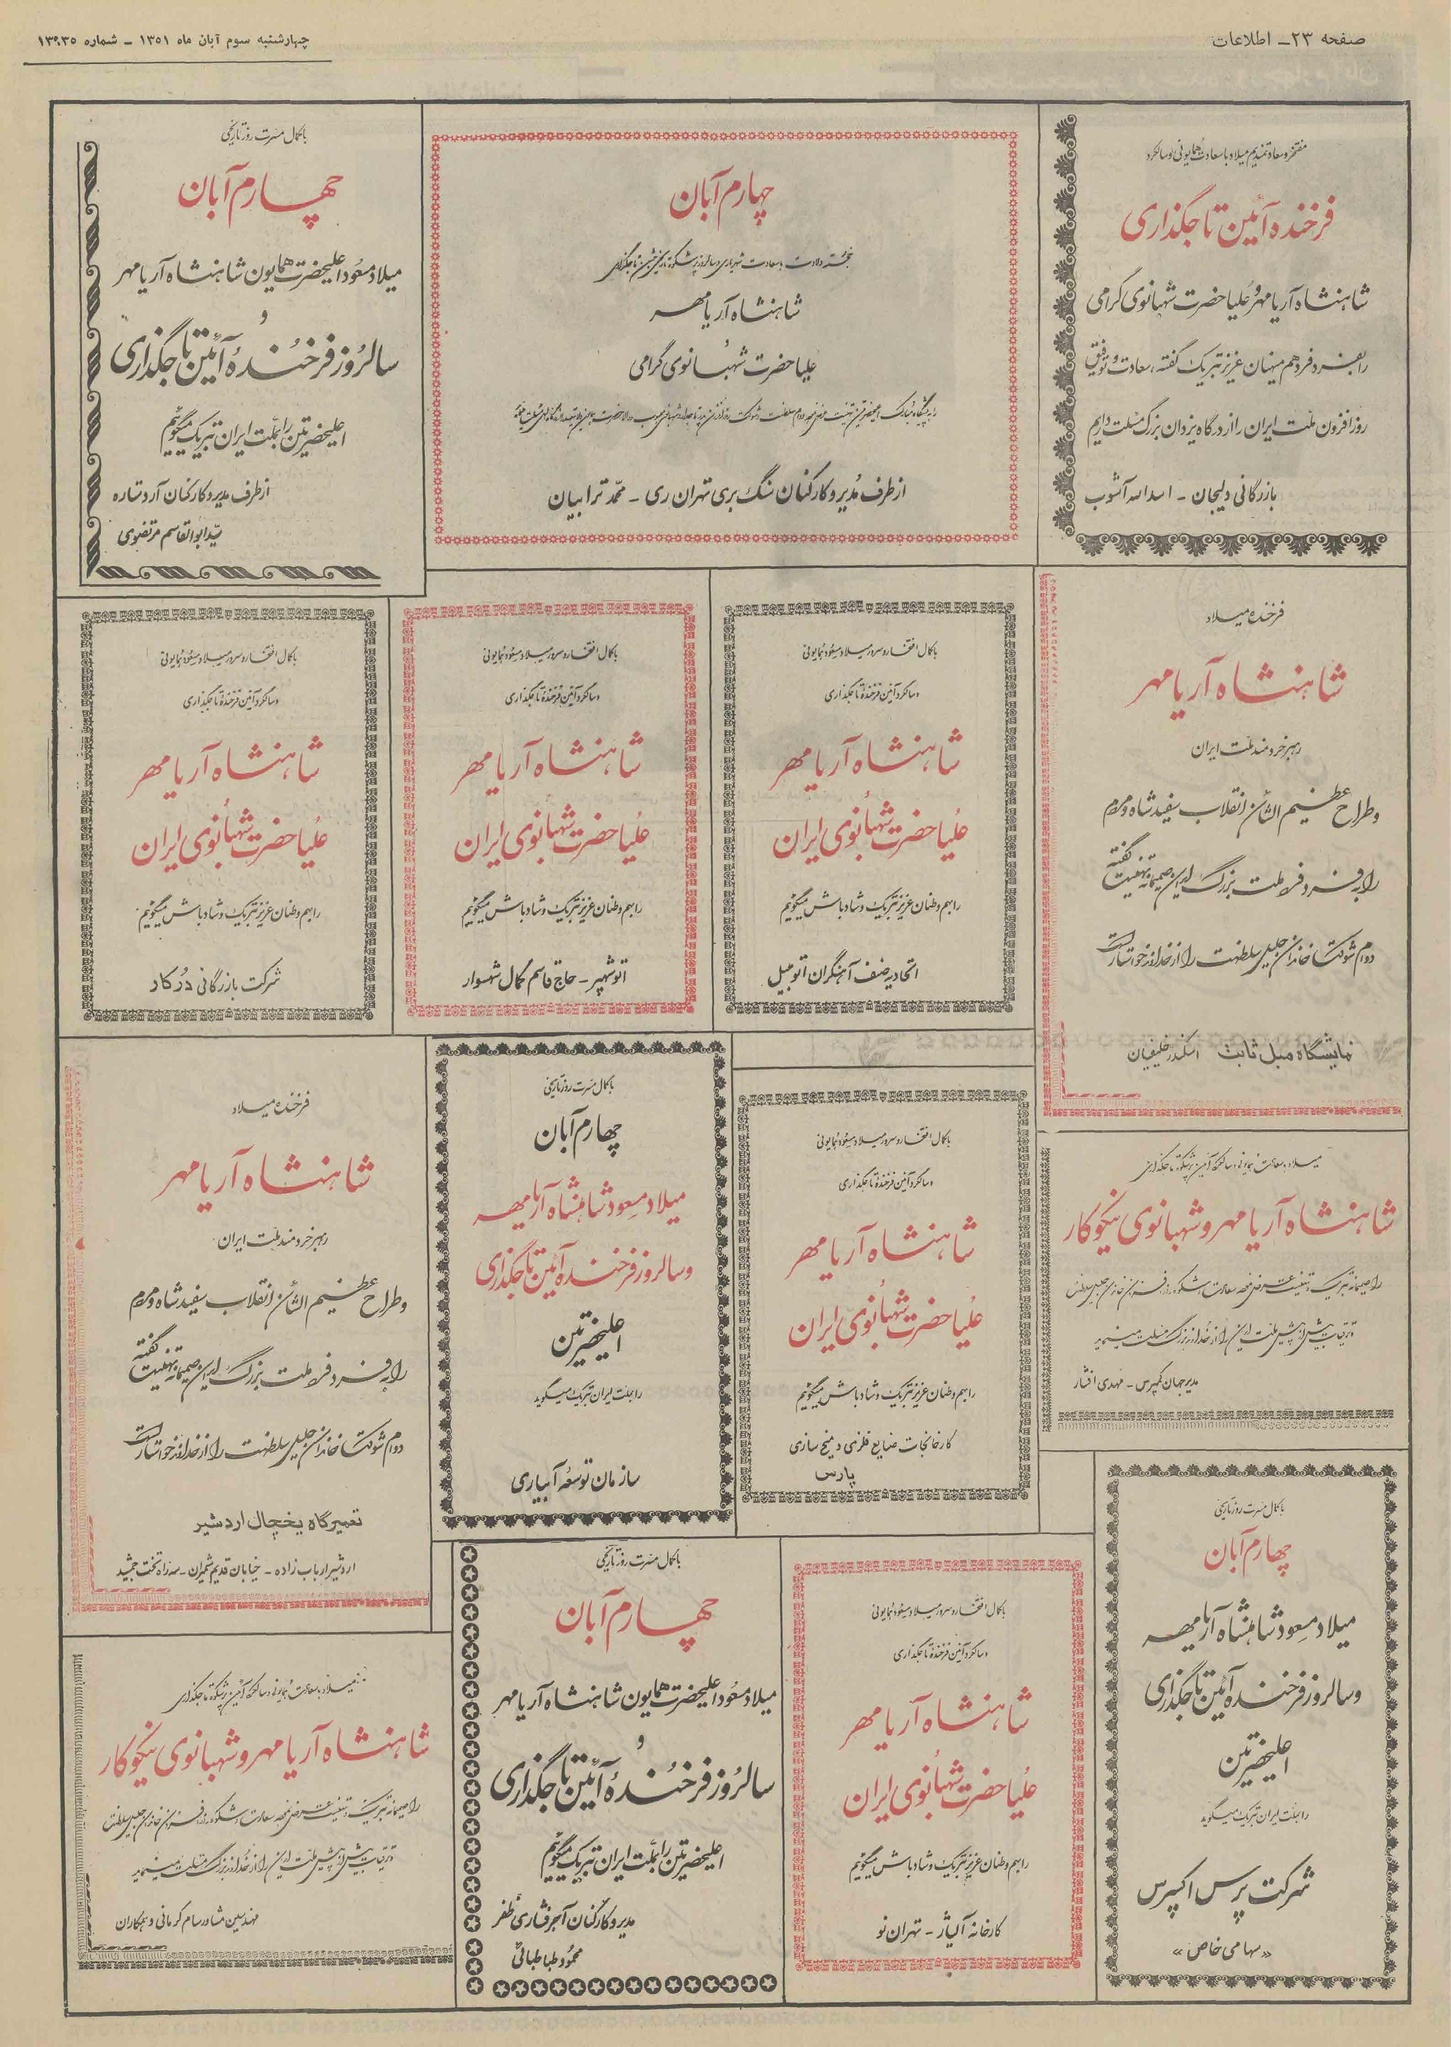 صفحه ۲۳ - اطلاعات
چهارشنبه سوم آبان ماه ۱۳۵۱ - شماره ۱۳۹۳۵
مفتخر و سعادتمندیم میلاد با سعادت همایونی و سالگرد
فرخنده آئین تاجگذاری
شاهنشاه آریامهر و علیا حضرت شهبانوی گرامی
را بفرد فرد هم میهنان عزیز تبریک گفته، سعادت و توفیق
روز افزون ملت ایران را از درگاه یزدان بزرگ مسئلت داریم
بازرگانی دلیجان - اسدالله آشوب
چهارم آبان
خجسته ولادت با سعادت شهریاری و سالروز پرشکوه تاریخی جشن تاجگذاری
شاهنشاه آریامهر
و
علیا حضرت شهبانوی گرامی
از طرف مدیر و کارکنان سنگ بری تهران ری - محمد ترابیان
با کمال مسرت روز تاریخی
چهارم آبان
میلاد مسعود اعلیحضرت همایون شاهنشاه آریامهر
و
سالروز فرخنده آئین تاجگذاری
اعلیحضرتین را بملت ایران تبریک میگوئیم
از طرف مدیر و کارکنان آرد ستاره
سید ابوالقاسم مرتضوی
فرخنده میلاد
شاهنشاه آریامهر
رهبر خردمند ملت ایران
و طراح عظیم الشأن انقلاب سفید شاه و مردم
را به فرد فرد ملت بزرگ ایران صمیمانه تهنیت گفته
دوام شوکت خاندان جلیل سلطنت را از خداوند خواستار است
نمایشگاه مبل ثابت اسکندر خلیفیان
با کمال افتخار و سرور میلاد مسعود همایونی
و سالگرد آئین فرخنده تاجگذاری
شاهنشاه آریامهر
علیا حضرت شهبانوی ایران
را بهم وطنان عزیز تبریک و شادباش میگوئیم
اتحادیه صنف آهنگران اتومبیل
با کمال افتخار و سرور میلاد مسعود همایونی
و سالگرد آئین فرخنده تاجگذاری
شاهنشاه آریامهر
علیا حضرت شهبانوی ایران
را بهم وطنان عزیز تبریک و شادباش میگوئیم
اتوشهپر - حاج قاسم کمال شهسوار
با کمال افتخار و سرور میلاد مسعود همایونی
و سالگرد آئین فرخنده تاجگذاری
شاهنشاه آریامهر
علیا حضرت شهبانوی ایران
را بهم وطنان عزیز تبریک و شادباش میگوئیم
شرکت بازرگانی درکاد
میلاد با سعادت همایونی و سالگرد آئین پرشکوه تاجگذاری
شاهنشاه آریامهر و شهبانوی نیکوکار
مدیر جهان کمپرس - مهدی افشار
با کمال افتخار و سرور میلاد مسعود همایونی
و سالگرد آئین فرخنده تاجگذاری
شاهنشاه آریامهر
علیا حضرت شهبانوی ایران
را بهم وطنان عزیز تبریک و شادباش میگوئیم
کارخانجات صنایع فلزی و میخ سازی
پارس
با کمال مسرت روز تاریخی
چهارم آبان
میلاد مسعود شاهنشاه آریامهر
و سالروز فرخنده آئین تاجگذاری
اعلیحضرتین
را بملت ایران تبریک میگوید
سازمان توسعه آبیاری
فرخنده میلاد
شاهنشاه آریامهر
رهبر خردمند ملت ایران
و طراح عظیم الشأن انقلاب سفید شاه و مردم
را به فرد فرد ملت بزرگ ایران صمیمانه تهنیت گفته
دوام شوکت خاندان جلیل سلطنت را از خداوند خواستار است
تعمیرگاه یخچال اردشیر
اردشیر ارباب زاده - خیابان قدیم شمیران - سه راه تخت جمشید
با کمال مسرت روز تاریخی
چهارم آبان
میلاد مسعود شاهنشاه آریامهر
و سالروز فرخنده آئین تاجگذاری
اعلیحضرتین
را بملت ایران تبریک میگوید
شرکت پرس اکسپرس
«سهامی خاص»
با کمال افتخار و سرور میلاد مسعود همایونی
و سالگرد آئین فرخنده تاجگذاری
شاهنشاه آریامهر
علیا حضرت شهبانوی ایران
را بهم وطنان عزیز تبریک و شادباش میگوئیم
کارخانه آلیاژ - تهران نو
با کمال مسرت روز تاریخی
چهارم آبان
میلاد مسعود اعلیحضرت همایون شاهنشاه آریامهر
و
سالروز فرخنده آئین تاجگذاری
اعلیحضرتین را بملت ایران تبریک میگوئیم
مدیر و کارکنان آجر فشاری ظفر
محمود طباطبائی
میلاد با سعادت همایونی و سالگرد آئین پرشکوه تاجگذاری
شاهنشاه آریامهر و شهبانوی نیکوکار
مهندسین مشاور سام کرمانی و همکاران